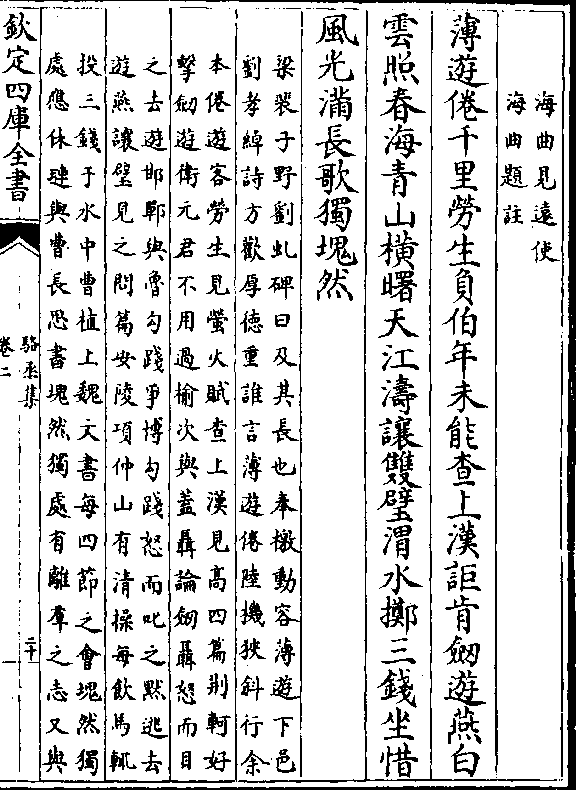 海曲見遠使
海曲題註
薄遊倦千里勞生負伯年未能查上漢詎肯劒遊燕白
雲照春海青山橫曙天江濤讓雙璧渭水擲三錢坐惜
風光滿長歌獨塊然
梁裴子野劉虬碑曰及其長也奉檄動容薄遊下邑
劉孝綽詩方歡厚德重誰言薄遊倦陸機狹斜行余
本倦遊客勞生見螢火賦查上漢見高四篇荆軻好
擊劒遊衛元君不用過榆次與蓋聶論劒聶怒而目
之去遊邯鄲與魯勾踐爭博勾踐怒而叱之黙逃去
遊燕讓璧見之問篇安陵項仲山有清操每飲馬輒
投三錢于水中曹植上魏文書每四節之會塊然獨
處應休璉與曹長思書塊然獨處有離羣之志又與
欽定四庫全書
駱丞集
卷二
二十